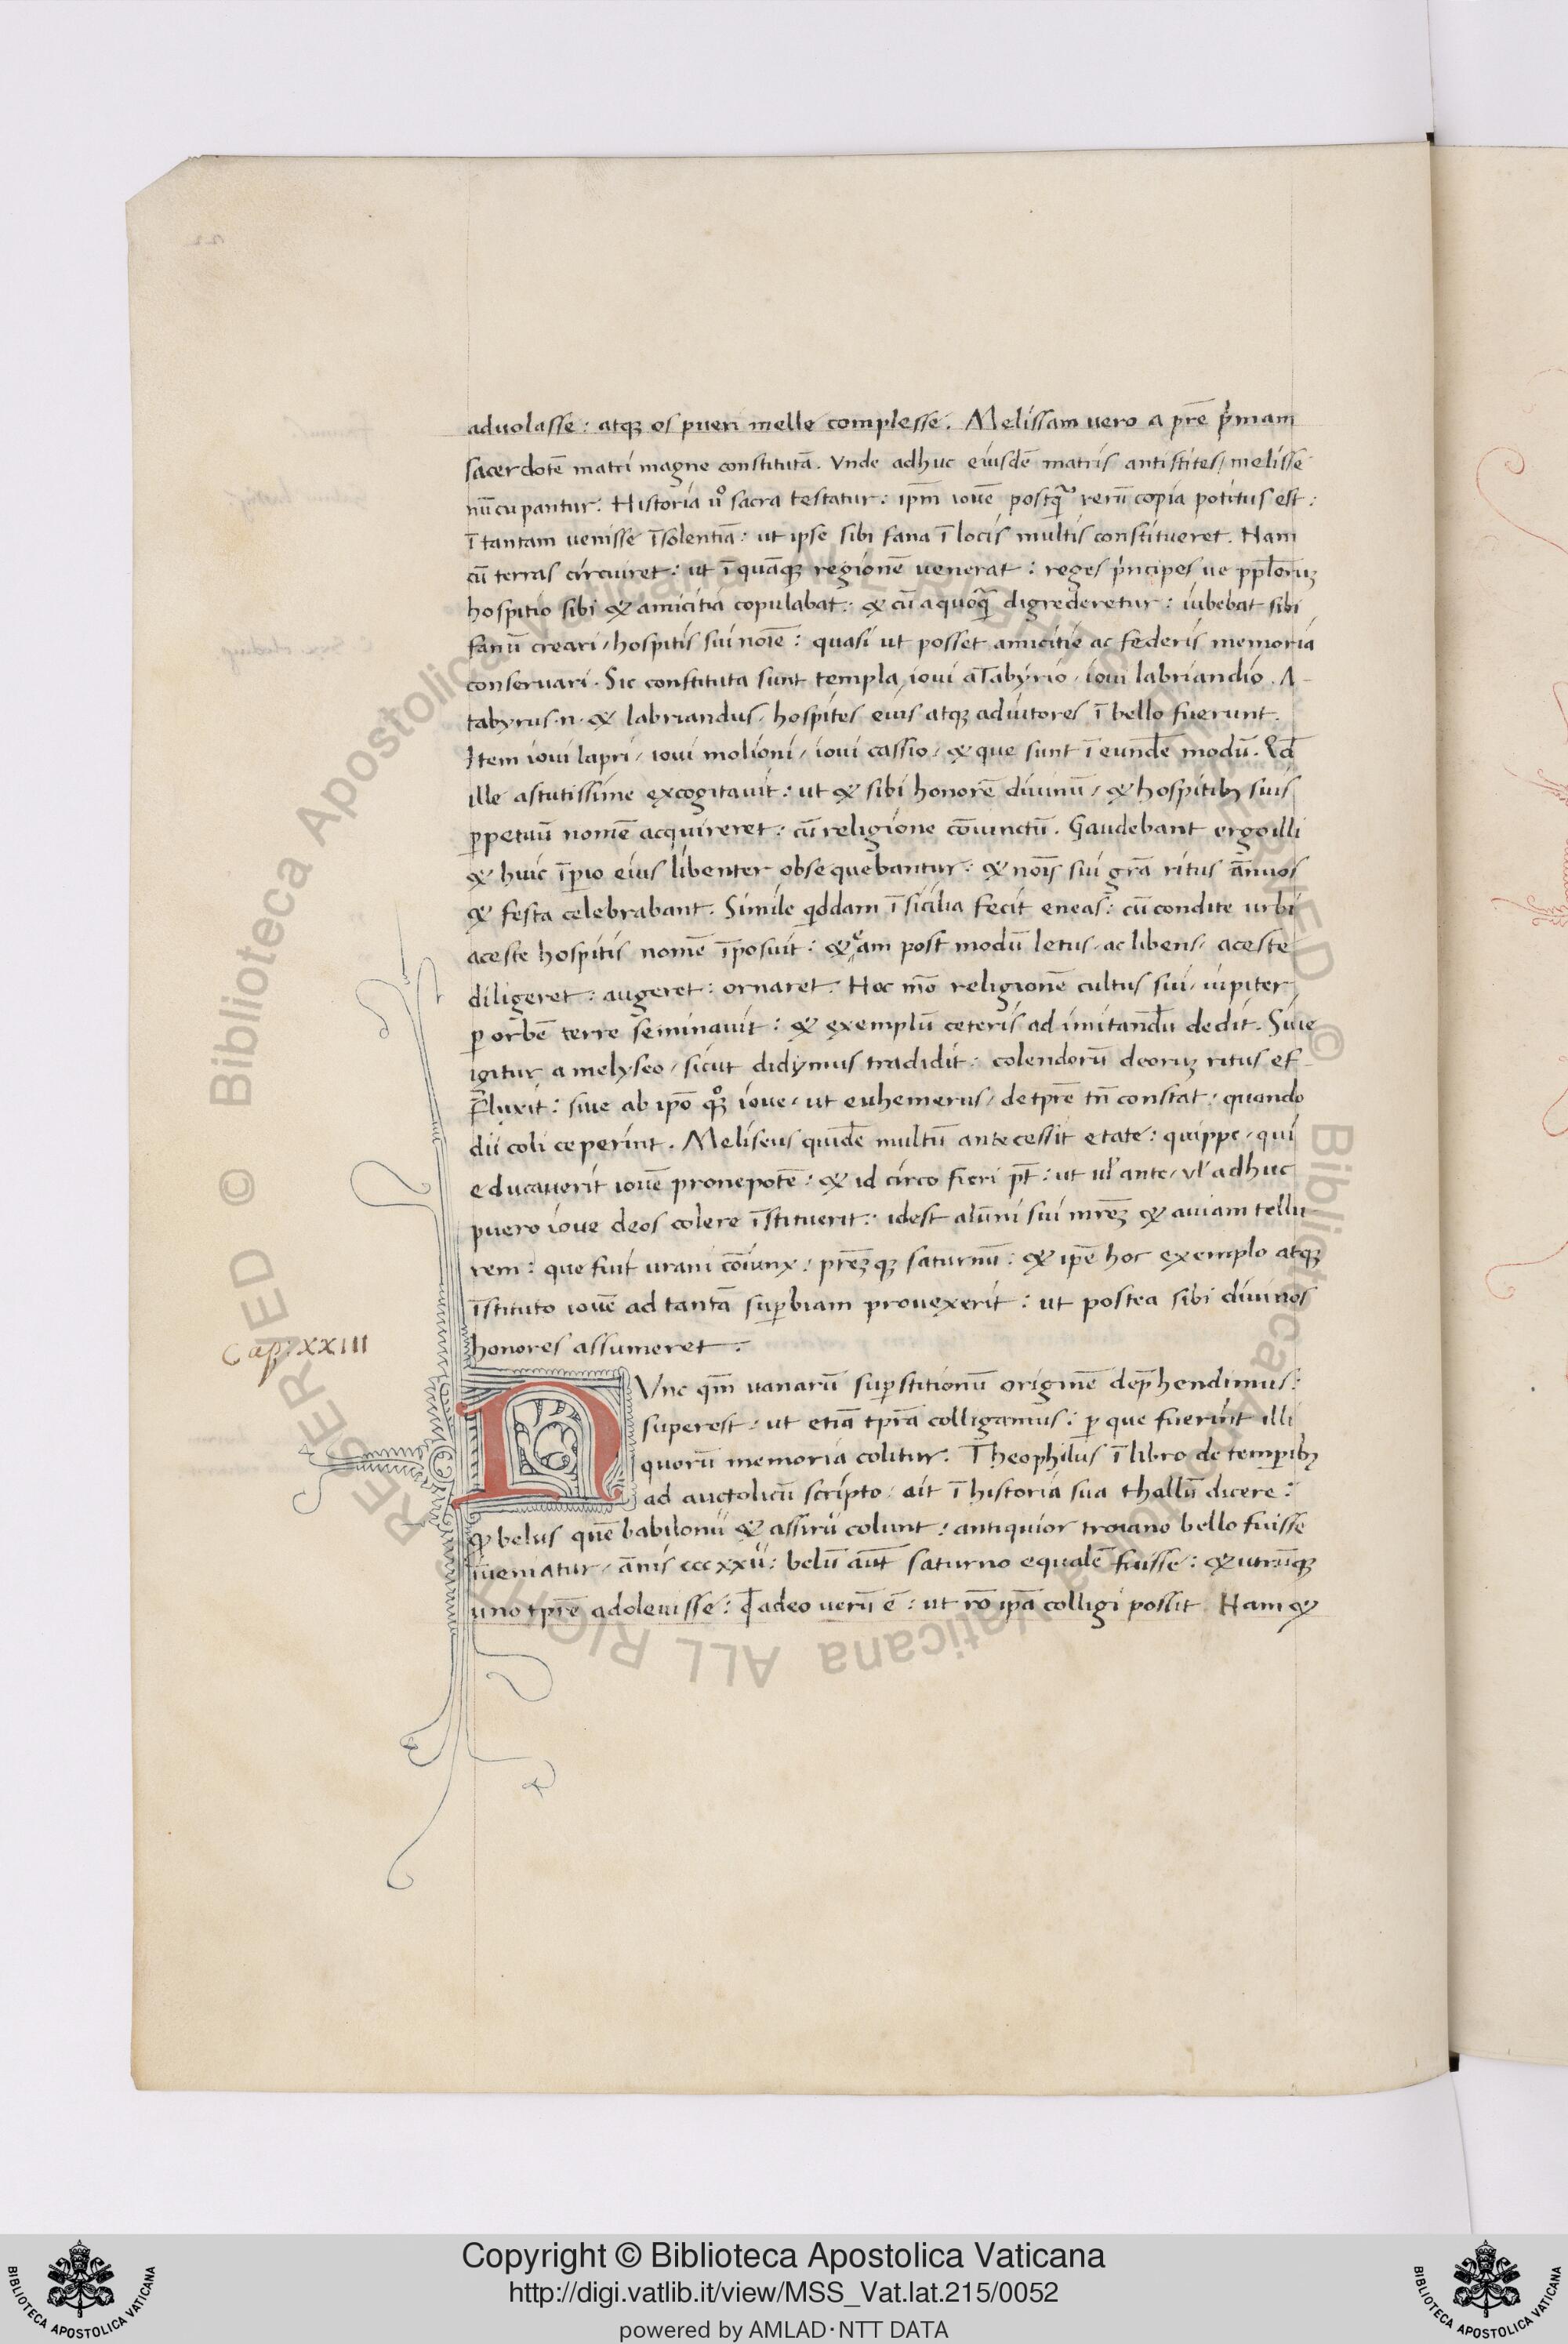 aduolasse: atqꝫ os pueri melle complesse. Melissam uero a pr̄e pͥmam
sacerdotē matri magne constitutā. Vnde adhuc eiusdē matris antistites / melisse
nūcupantur. Historia uͦ sacra testatur: ip̄m iouē postqᷓ rerū copia potitus est:
ī tantam uenisse īsolentiā: ut ipse sibi fana ī locis multis constitueret. Nam
cū terras circuiret: ut ī quāqꝫ regionē uenerat: reges pͥncipes ue pp̄loꝝ
hospitio sibi & amicitia copulabat: & cū a quoqᷓ digrederetur: iubebat sibi
fanū creari / hospitis sui noīe: quasi ut posset amicitie ac federis memoria
conseruari. Sic constituta sunt templa ioui aTabyrio / ioui labriandio. A-
tabyrus .n. & labriandus / hospites eius atqꝫ adiutores ī bello fuerunt.
Item ioui lapri / ioui molioni / ioui cassio / & que sunt ī eundē modū. Qd̄
ille astutissime excogitauit: ut & sibi honorē diuinū / & hospitibꝫ suis
ꝑpetuū nomē acquireret: cū religione cōiunctū. Gaudebant ergo illi
& huic īꝑio eius libenter obsequebantur: & noīs sui gr̄a ritus ānuos
& festa celebrabant. Simile qͥddam ī sicilia fecit eneas: cū condite urbi
aceste hospitis nomē īposuit: & eam post modū letus ac libens / aceste
diligeret: augeret: ornaret. Hoc mō religionē cultus sui / iupiter
ꝑ orbē terre seminauit: & exemplū ceteris ad imitandū dedit. Siue
igitur a melyseo / sicut didymus tradidit: colendorū deoꝝ ritus ef-
fluxit: siue ab ip̄o qͦꝫ ioue / ut euhemerus / de tp̄re tn̄ constat: quando
dii coli ceperint. Meliseus quidē multū antecessit etate: quippe / qui
educauerit iouē pronepotē: & id circo fieri pt̄: ut ul̓ ante / ul̓ adhuc
puero ioue deos colere īstituerit: idest alūni sui mr̄eꝫ & auiam tellu
rem: que fuit urani cōiunx: pr̄eꝫqꝫ saturnū: & ip̄e hoc exemplo atqꝫ
īstituto iouē ad tantā suꝑbiam prouexerit: ut postea sibi diuinos
honores assumeret.
Cap. XXIII
NVnc qm̄ uanarū suꝑstitionū originē dep̄hendimus:
superest: ut etiā tp̄ra colligamus: ꝑ que fuerint illi
quorū memoria colitur. Theophilus ī libro de temꝑibꝫ
ad auctolicū scripto / ait ī historia sua thallū dicere:
ꝙ belus quē babilonii & assirii colunt: antiquior troiano bello fuisse
īueniatur / ānis cccxxii: belū aūt saturno equalē fuisse: & utrūqꝫ
uno tp̄re adoleuisse: qd̄ adeo uerū ē: ut rō ip̄a colligi possit. Nam &
Copyright © Biblioteca Apostolica Vaticana
http://digi.vatlib.it/view/MSS_Vat.lat.215/0052
powered by AMLAD·NTT DATA